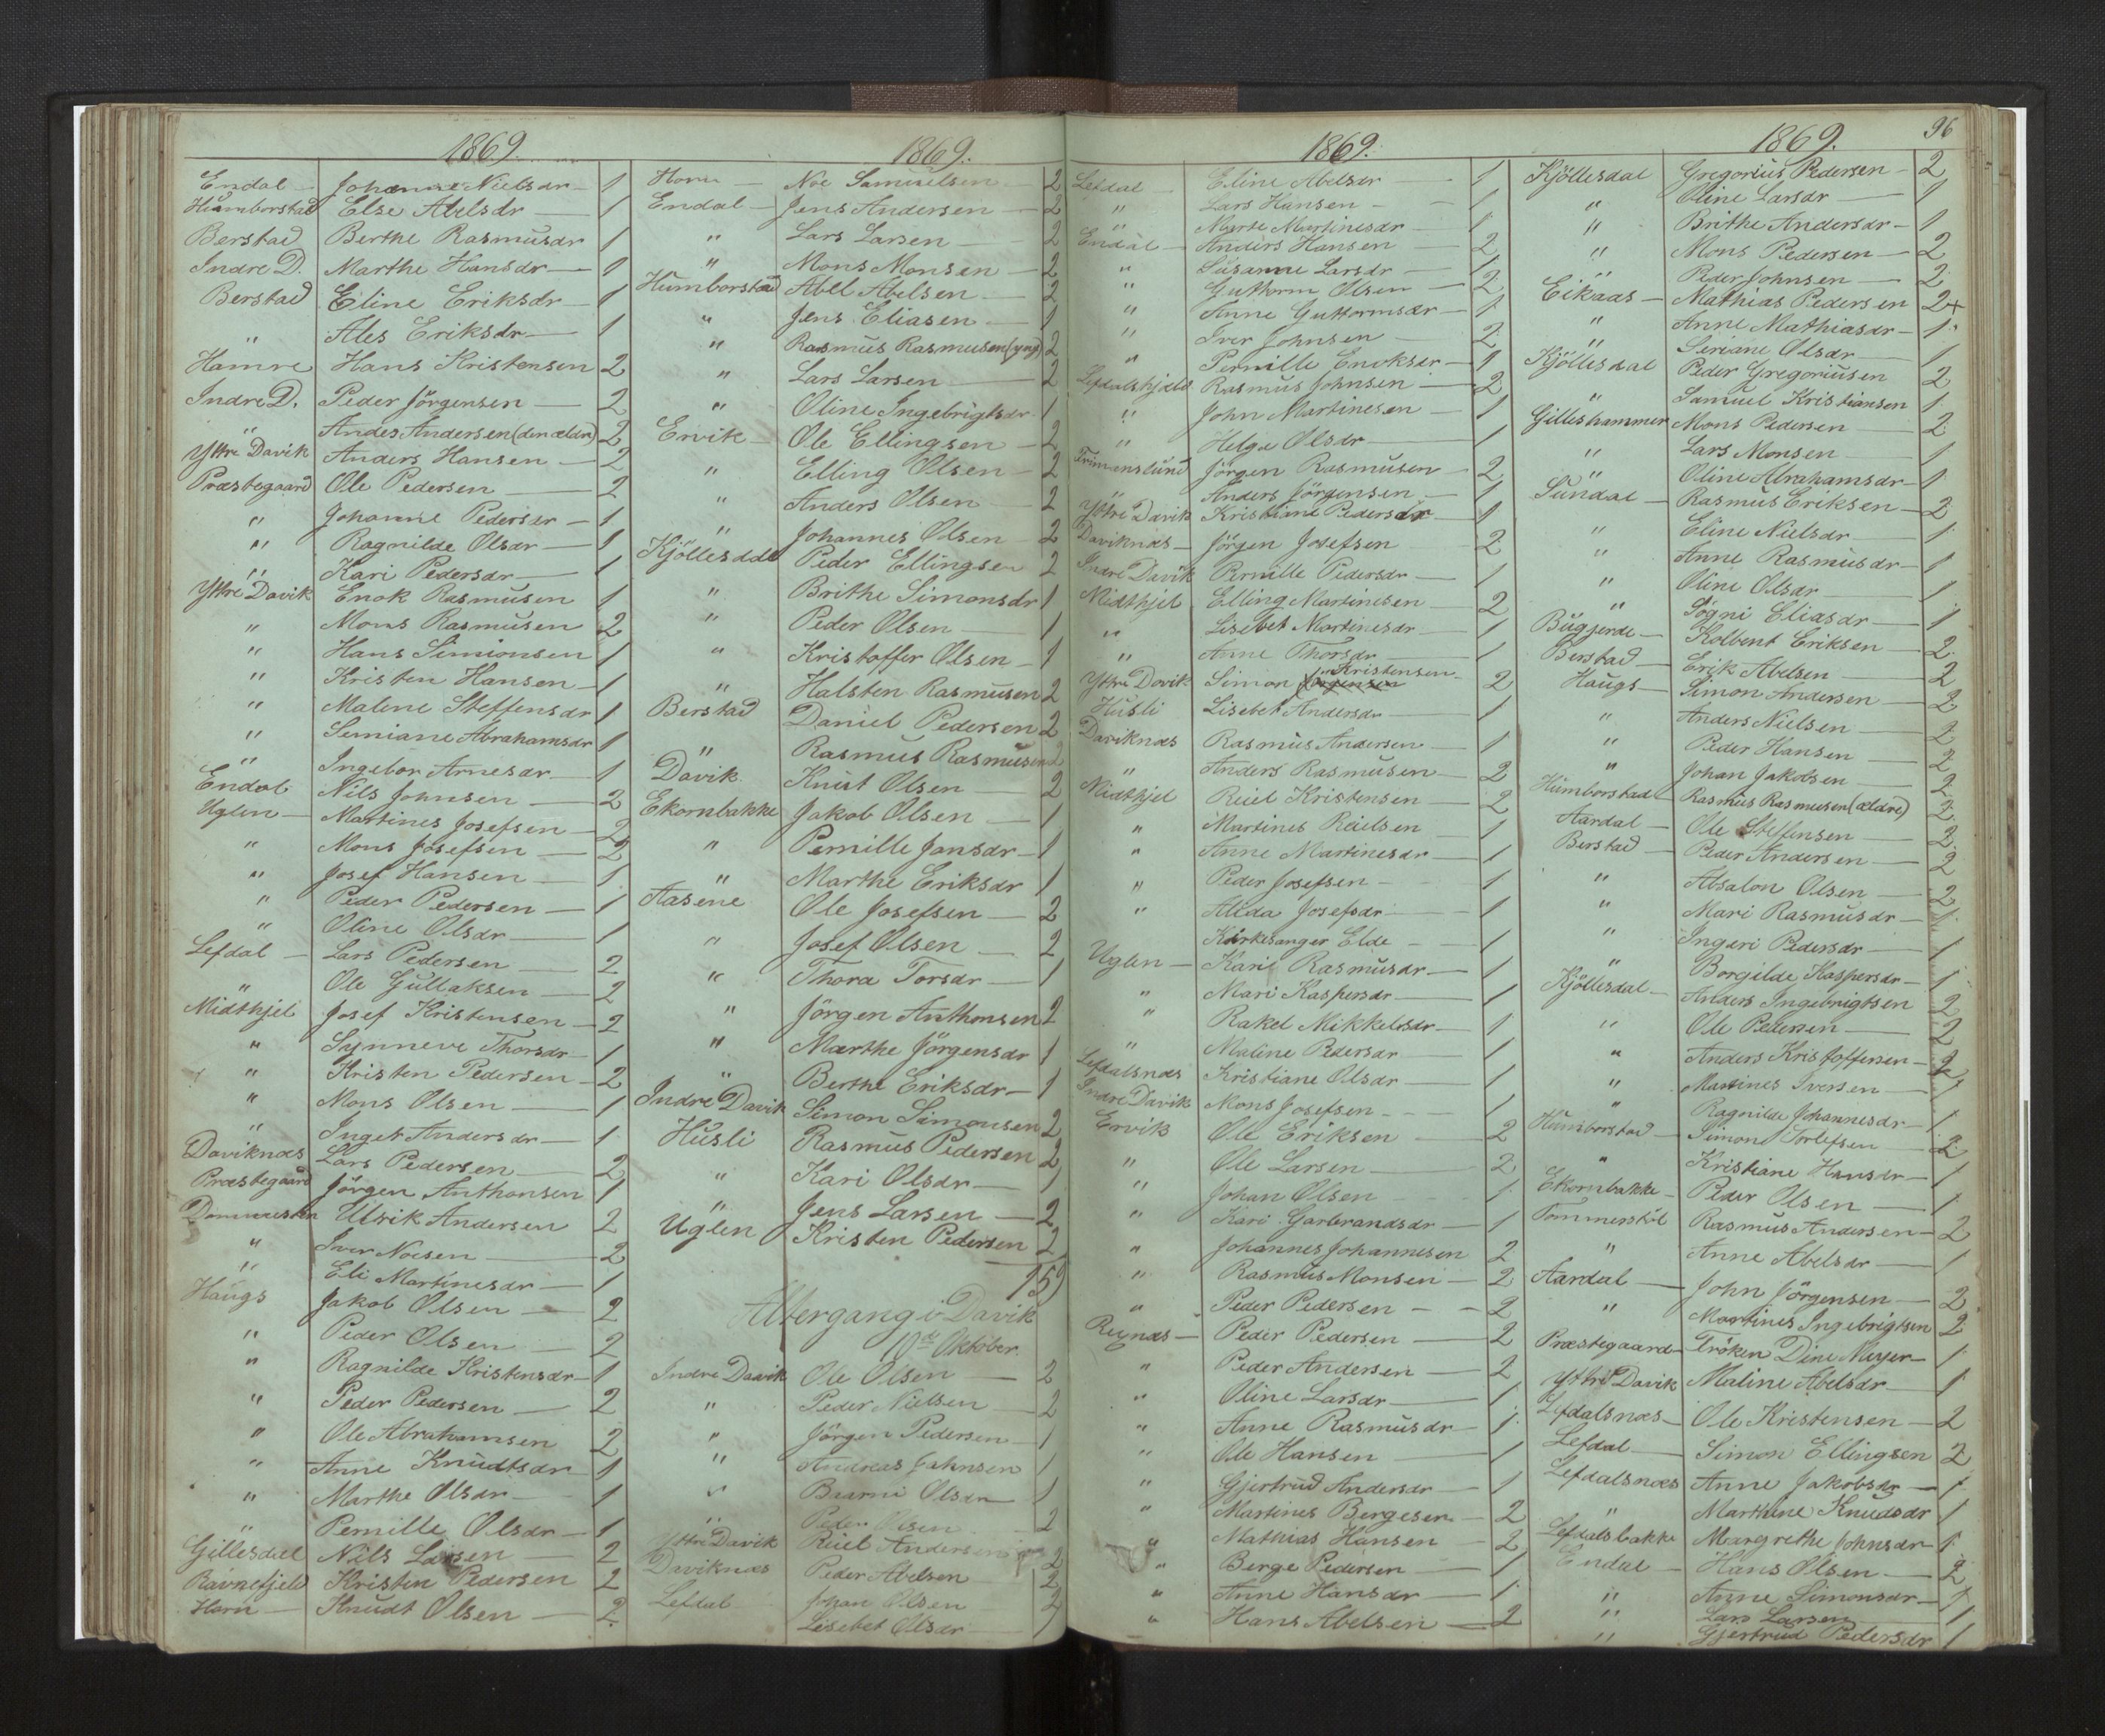 1869.
Endal — Johanne Nielsdr — 1
Humborstad Else Abelsdr — 1
Berstad Berthe Rasmusdr 1
Indre D. Marthe Hansdr — 1
Berstad Eline Eriksdr — 1
" Ales Eriksdr — 1
Hamre Hans Kristensen 2
Indre D. Peder Jörgensen — 2
" Andes Andersen (den ældre) 2
Yttre Davik Anders Hansen — 2
Præstegaard Ole Pedersen — 2
" Johanne Pedersdr — 1
" Ragnilde Olsdr — 1
" Kari Pedersdr — 1
Yttre Davik Enok Rasmusen 1
" Mons Rasmusen 2
" Hans Simonsen 1
" Kristen Hansen — 1
" Malene Steffensdr 1
" Semiane Abrahamsdr 1
" Ingebor Arnesdr — 1
Endal Nils Johnsen — 2
Uglen — Martines Josefsen — 2
" Mons Josefsen — 2
" Josef Hansen — 1
" Peder Pedersen — 1
" Oline Olsdr — 1
Lefdal — Lars Pedersen — 2
" Ole Gullaksen — 2
Midthjel Josef Kristensen — 2
" Synneve Thorsdr — 1
" Kristen Pedersen — 2
" Mons Olsen — 1
" Inget Andersdr — 1
Daviknæs Lars Pedersen — 2
Præstegaard Jörgen Anthonsen 1
Ulrik Andersen 2
" Iver Noesen — 2
" Eli Martinesdr — 1
Haugs Jakob Olsen — 2
" Peder Olsen — 2
" Ragnilde Kristensdr — 1
" Peder Pedersen — 2
" Ole Abrahamsen 2
" Anne Knudtsdr 1
" Marthe Olsdr — 1
" Pernille Olsdr — 1
Gillesdal Nils Larsen — 2
Ravnefjeld Kristen Pedersen 2
Horn — Knudt Olsen — 2
1869.
Horn — Noe Samuelsen — 2
Endal — Jens Andersen — 2
" Lars Larsen — 2
" Mons Monsen — 2
Humborstad Abel Abelsen — 2
" Jens Eliasen — 1
" Rasmus Rasmusen (yng) 2
" Lars Larsen — 2
" Oline Ingebrigtsdr 1
Ervik — Ole Ellingsen — 2
" Elling Olsen — 2
" Anders Olsen — 2
" Johannes Olsen — 2
Kjöllesdal Peder Ellingsen 2
" Brithe Simonsdr 1
" Peder Olsen — 1
" Kristoffer Olsen — 1
" Halsten Rasmusen 2
Berstad Daniel Pedersen 2
" Rasmus Rasmusen 2
Davik Knut Olsen — 2
Ekornbakke Jakob Olsen — 1
" Pernille Jonsdr — 1
" Marthe Eriksdr 1
Aasene Ole Josefsen — 2
" Josef Olsen — 2
" Thora Torsdr — 1
" Jörgen Anthonsen 2
" Marthe Jörgensdr 1
" Berthe Eriksdr — 1
Indre Davik Simon Simonsen 2
Husli Rasmus Pedersen 2
" Kari Olsdr — 1
" Jens Larsen — 2
Uglen Kristen Pedersen 2
159
Altergang i Davik
10de Oktober.
Indre Davik Ole Olsen — 2
" Peder Nielsen — 2
" Jörgen Pedersen — 1
" Andreas Johnsen 1
" Olsdr 1
" Peder Olsen — 2
Yttre Davik Reiel Andersen 2
Daviknæs Peder Abelsen 2
Lefdal Johan Olsen 2
Lisebet Olsdr — 1
1869.
Lefdal — Eline Abelsdr — 1
" Lars Hansen — 1
" Marte Martinesdr — 1
Endal — Anders Hansen — 2
" Susanne Larsdr — 1
" Guttorm Olsen — 2
" Anne Guttormsdr — 1
" Iver Johnsen — 2
" Pernille Enoksdr — 1
Rasmus Johnsen — 2
" John Martinesen — 1
" Helga Olsdr — 1
Jörgen Rasmusen — 2
" Anders Jörgensen — 1
Yttre Davik Kristiane Pedersdr — 1
Daviknæs — Jörgen Josefsen 2
Indre Davik Pernille Pedersdr — 1
Midthjel Elling Martinesen — 2
" Lisebet Martinesdr — 1
" Anne Thorsdr — 1
Yttre Davik Simon Kristensen — 2
Husli Lisebet Andersdr — 1
Daviknæs Rasmus Andersen — 1
" Anders Rasmusen — 2
Midthjel Reiel Kristensen — 2
" Martines Reielsen — 1
" Anne Martinesdr — 1
" Peder Josefsen — 1
" Alida Josefsdr — 1
Kirkesanger Elde — 1
Uglen — Kari Rasmusdr — 1
" Mari Kaspersdr — 1
" Rakel Mikkelsdr — 1
" Maline Pedersdr — 1
Lefdalsnæs Kristiane Olsdr — 1
Indre Davik Mons Josefsen — 1
Ervik Ole Eriksen — 2
" Ole Larsen — 2
" Johan Olsen — 1
" Kari Garbrandsdr — 1
" Johannes Johannesen 2
" Rasmus Monsen — 2
" Peder Pedersen — 2
Rugnæs — Peder Pedersen — 2
" Peder Andersen — 2
" Oline Larsdr — 1
" Anne Rasmusdr — 1
" Ole Hansen — 1
" Gjertrud Andersdr — 1
" Martines Bergesen — 2
" Mathias Hansen — 2
" Berge Pedersen — 1
" Anne Hansdr — 1
" Hans Abelsen — 2
1869.
96
Kjöllesdal Gregorius Pedersen — 2
" Oline Larsdr — 1
" Brithe Andersdr — 1
" Mons Pedersen — 2
" Peder Johnsen — 2
Eikaas — Mathias Pedersen 2+
" Anne Mathiasdr — 1
" Seriane Olsdr — 1
Kjöllesdal Peder Gregoriusen 2
" Samuel Kristiansen 1
Gilleshammer Mons Pedersen — 2
" Lars Monsen — 1
" Oline Abrahamsdr — 1
Sundal — Rasmus Eriksen — 2
" Eline Nielsdr — 1
" Anne Rasmusdr — 1
" Oline Olsdr — 1
" Sögni Eliasdr — 1
Bugjerde — Kolbent Eriksen — 2
Berstad — Erik Abelsen — 2
Haugs — Simon Andersen — 2
" Anders Nielsen — 2
" Peder Hansen — 2
" Johan Jakobsen — 2
Humborstad — Rasmus Rasmusen (ældre) 2
Aardal — Ole Steffensen — 2
Berstad — Peder Andersen — 2
" Absalon Olsen — 2
" Mari Rasmusdr — 1
" Ingeri Pedersdr — 1
" Borgilde Kaspersdr — 1
Kjöllesdal — Anders Ingebrigtsen 2
" Ole Pedersen — 2
" Anders Kristoffersen — 2
" Martines Iversen — 1
" Ragnilde Johannesdr — 1
Humborstad — Simon Torlefsen — 2
" Kristiane Hansdr — 1
Ekornbakke — Peder Olsen — 1
Tommerstöl Rasmus Andersen — 2
" Anne Abelsdr — 1
Aardal — John Jörgensen — 2
" Martines Ingebrigtsen 2
Præstegaard — Fröken Dine Meyer — 1
Yttre Davik Maline Abelsdr — 1
Lefdalsnæs — Ole Kristensen — 2
Lefdal — Simon Ellingsen 2
Lefdalsnæs Anne Jakobsdr — 1
" Marthine Knudsdr 1
Lefdalsbakke Margrethe Johnsdr — 1
Endal — Hans Olsen — 2
" Anne Simonsdr — 1
" Lars Larsen — 1
" Gjertrud Pedersdr 1